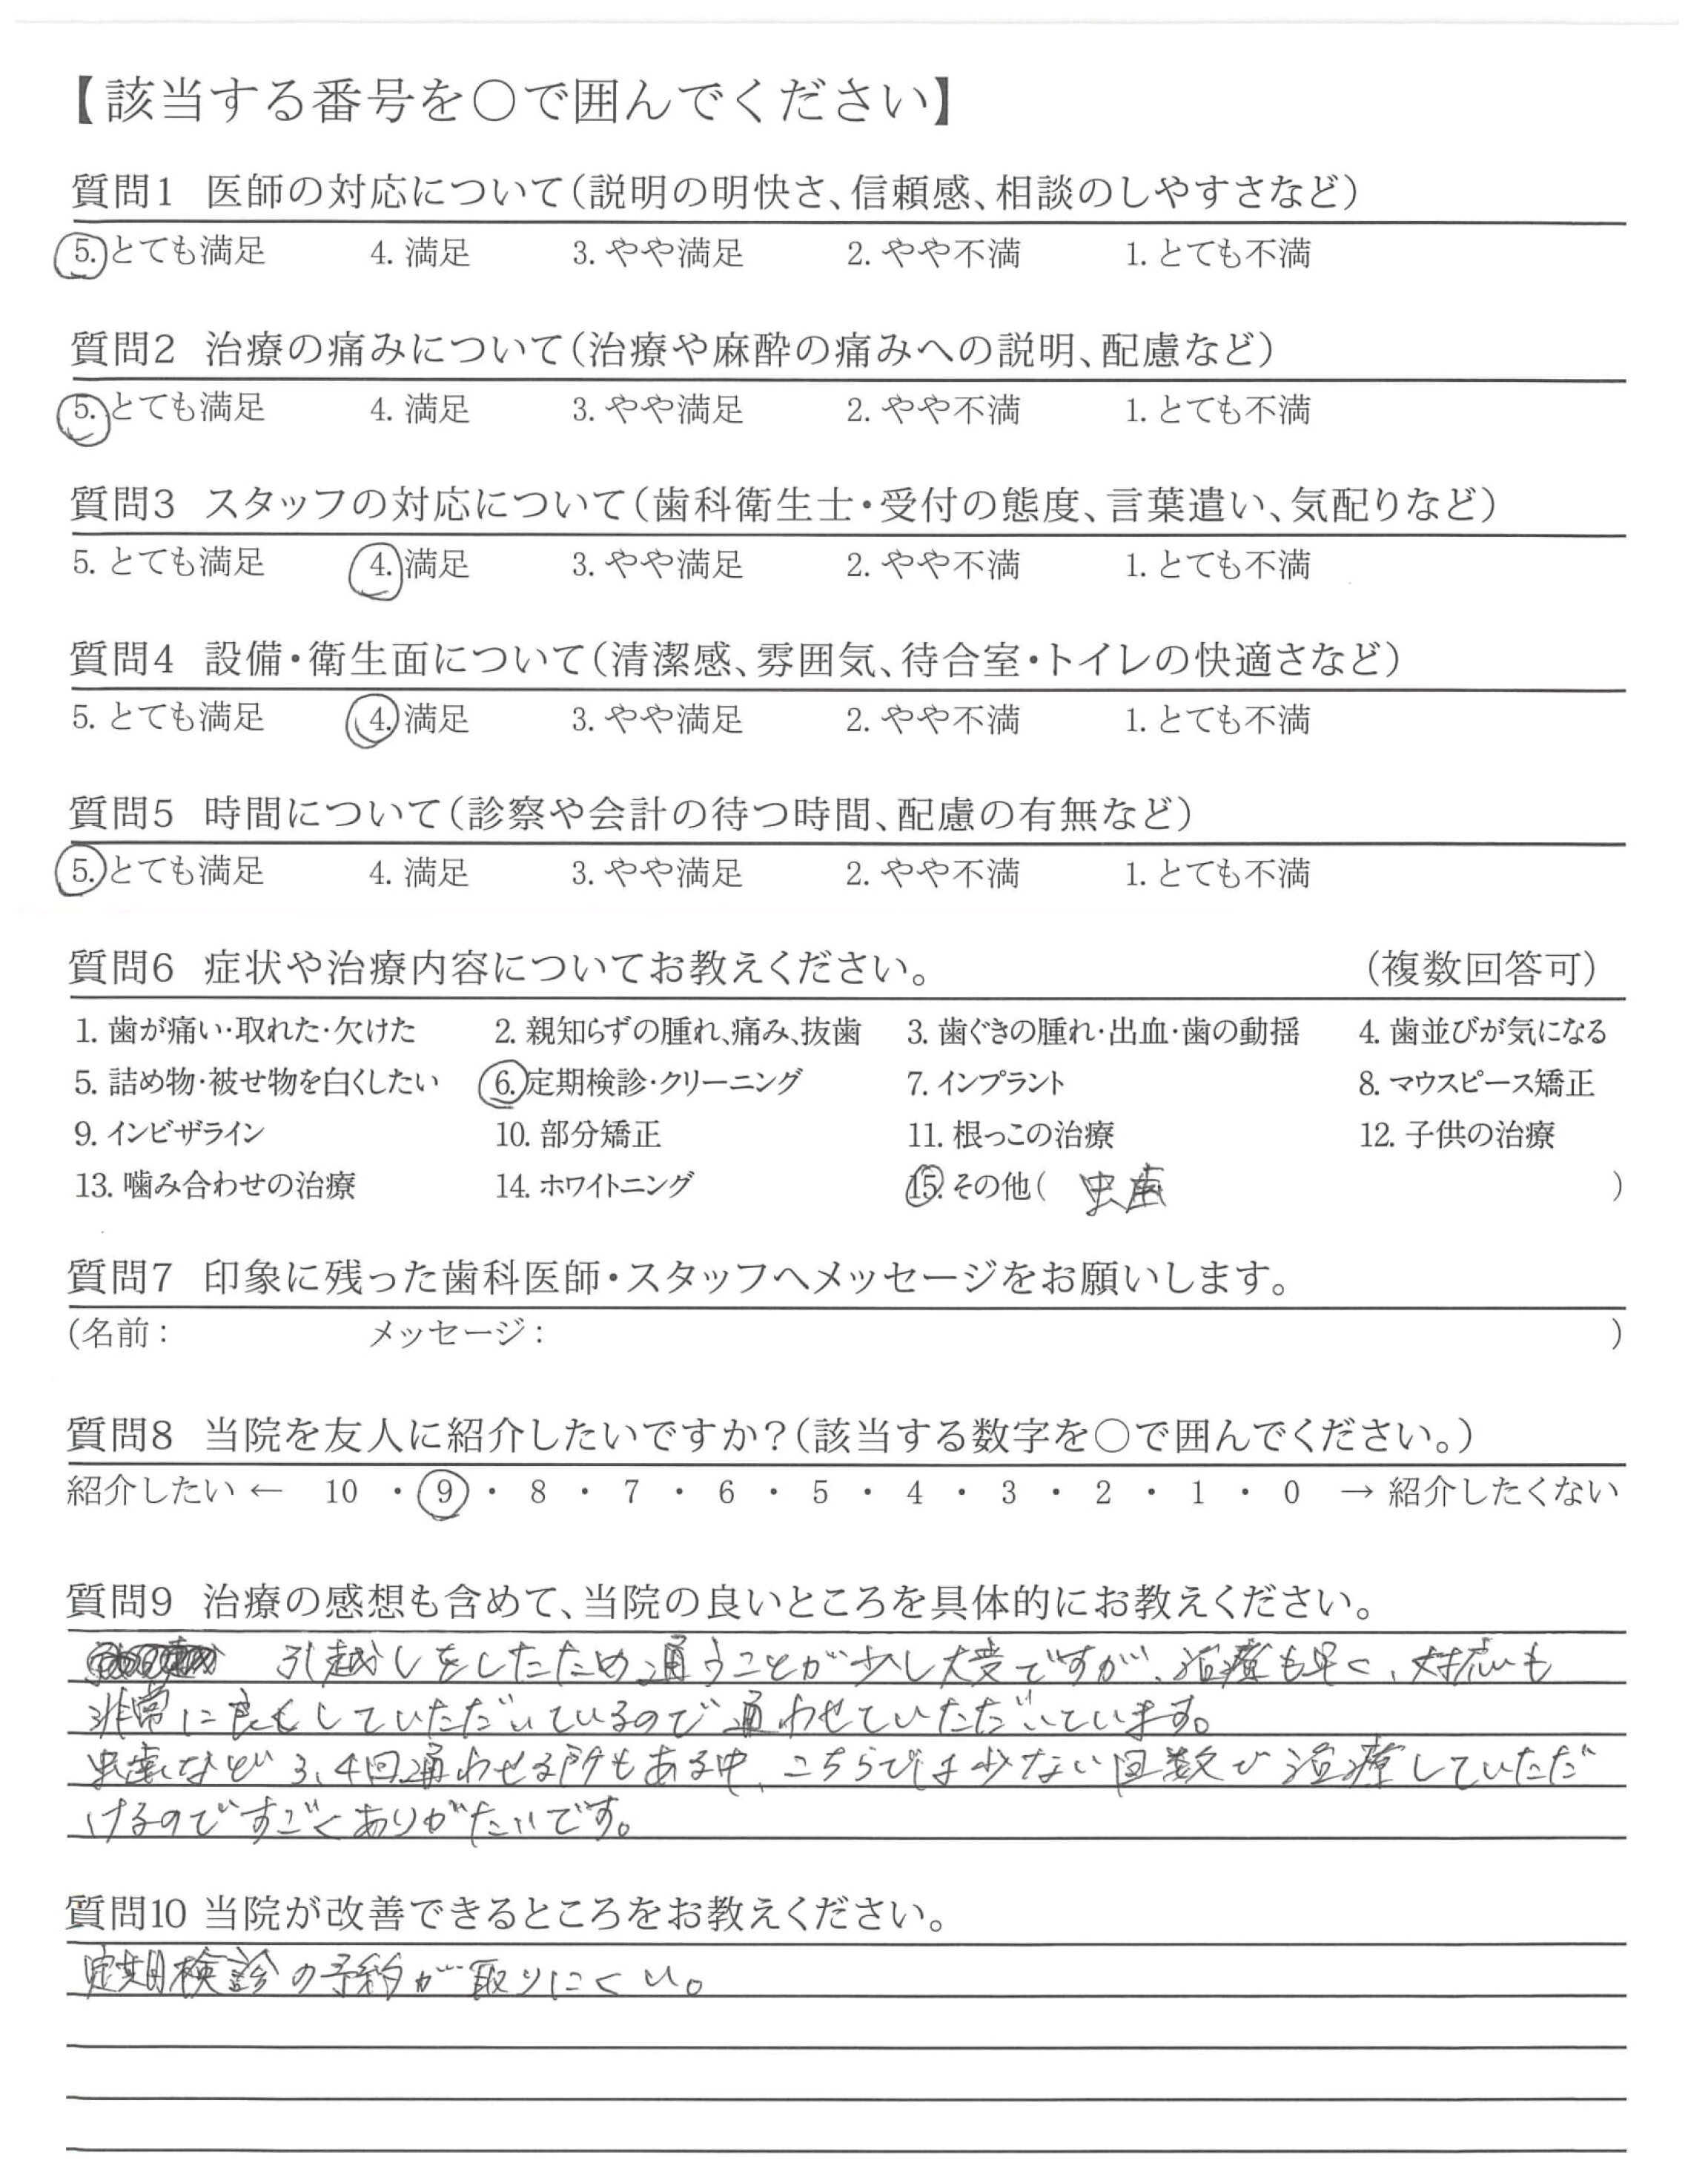 【該当する番号を○で囲んでください】
質問1 医師の対応について(説明の明快さ、信頼感、相談のしやすさなど)
5. とても満足 4. 満足 3. やや満足 2. やや不満 1. とても不満
質問2 治療の痛みについて(治療や麻酔の痛みへの説明、配慮など)
5. とても満足 4. 満足 3. やや満足 2. やや不満 1. とても不満
質問3 スタッフの対応について(歯科衛生士・受付の態度、言葉遣い、気配りなど)
5. とても満足 4. 満足 3. やや満足 2. やや不満 1. とても不満
質問4 設備・衛生面について(清潔感、雰囲気、待合室・トイレの快適さなど)
5. とても満足 4. 満足 3. やや満足 2. やや不満 1. とても不満
質問5 時間について(診察や会計の待つ時間、配慮の有無など)
5. とても満足 4. 満足 3. やや満足 2. やや不満 1. とても不満
質問6 症状や治療内容についてお教えください。 (複数回答可)
1. 歯が痛い・取れた・欠けた 2. 親知らずの腫れ、痛み、抜歯 3. 歯ぐきの腫れ・出血・歯の動揺 4. 歯並びが気になる
5. 詰め物・被せ物を白くしたい 6. 定期検診・クリーニング 7. インプラント 8. マウスピース矯正
9. インビザライン 10. 部分矯正 11. 根っこの治療 12. 子供の治療
13. 噛み合わせの治療 14. ホワイトニング 15. その他( 虫歯 )
質問7 印象に残った歯科医師・スタッフへメッセージをお願いします。
(名前: メッセージ: )
質問8 当院を友人に紹介したいですか?(該当する数字を○で囲んでください。)
紹介したい ← 10 ・ 9 ・ 8 ・ 7 ・ 6 ・ 5 ・ 4 ・ 3 ・ 2 ・ 1 ・ 0 → 紹介したくない
質問9 治療の感想も含めて、当院の良いところを具体的にお教えください。
引越しをしたため通うことが少し大変ですが、治療も早く、対応も
非常に良くしていただいているので通わせていただいています。
虫歯など3、4回通わせる所もある中、こちらでは少ない回数で治療していただ
けるのですごくありがたいです。
質問10 当院が改善できるところをお教えください。
定期検診の予約が取りにくい。